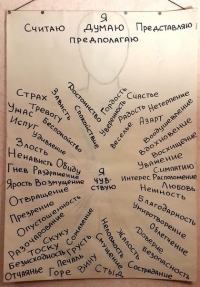 Я
Считаю Думаю Представляю
Предполагаю
Страх
Тревогу
Ужас
Беспокойство
Испуг
Удивление
Зависть
Достоинство
Спокойствие
Гордость
Уверенность
Счастье
Радость
Нетерпение
Веселье
Азарт
Воодушевление
Вдохновение
Восхищение
Уважение
Симпатию
Интерес Расположение
Любовь
Нежность
Благодарность
Умиротворение
Облегчение
Доверие
Безопасность
Жалость
Сострадание
Злость
Ненависть Обиду
Гнев Раздражение
Ярость Возмущение
Отвращение
Презрение
Опустошенность
Разочарование
Скуку
Тоску
Безысходность
Грусть
Печаль
Отчаянье
Горе
Вину
Стыд
Я
чув-
ствую